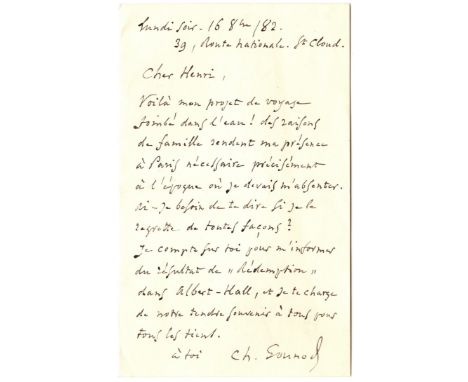 Lundi soir. 16 8bre/82.
39, Route Nationale. St Cloud.
Cher Henri,
Voilà mon projet de voyage
tombé dans l'eau! des raisons
de famille rendent ma présence
à Paris nécessaire précisément
à l'époque où je devais m'absenter.
Ai-je besoin de te dire si je le
regrette de toutes façons?
Je compte sur toi pour m'informer
du résultat de "Rédemption"
dans Albert-Hall, et je te charge
de notre tendre souvenir à tous pour
tous les tiens.
à toi Ch. Gounod